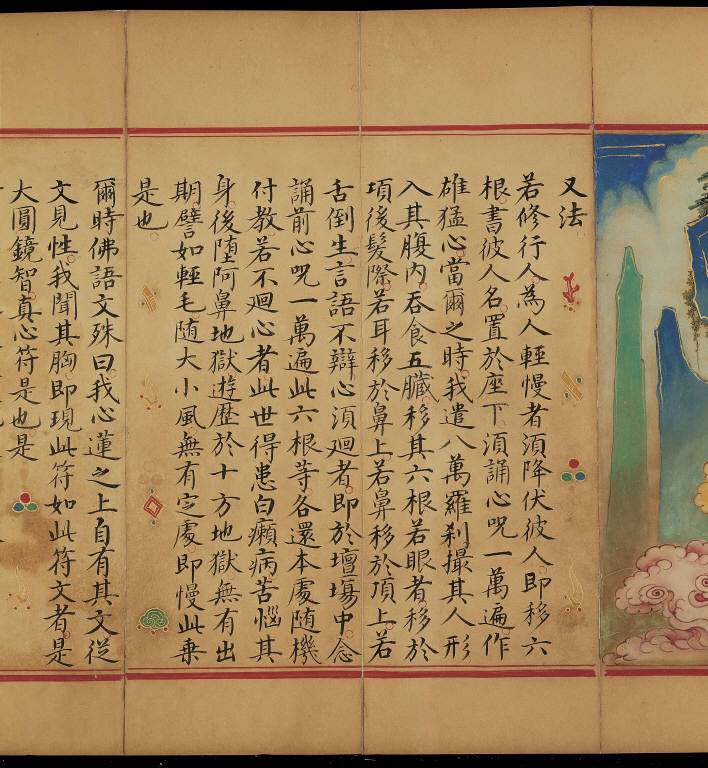 又法
若修行人為人輕慢者湏降伏彼人即移六
根書彼人名置於座下湏誦心呪一萬遍作
雄猛心當爾之時我遣八萬羅刹撮其人形
入其腹內吞食五臟移其六根若眼者移於
項後髮際若耳移於鼻上若鼻移於項上若
舌倒生言語不辯心湏迴者即於壇場中念
誦前心呪一萬遍此六根等各還本處随機
付教若不迴心者此世得患白癩病苦惱其
身後堕阿鼻地獄遊歷於十方地獄無有出
期譬如輕毛随大小風無有定處即慢此乗
是也
爾時佛語文殊曰我心蓮之上自有其文従
文見性我聞其胸即現此符如此符文者是
大圓鏡智真心符是也是